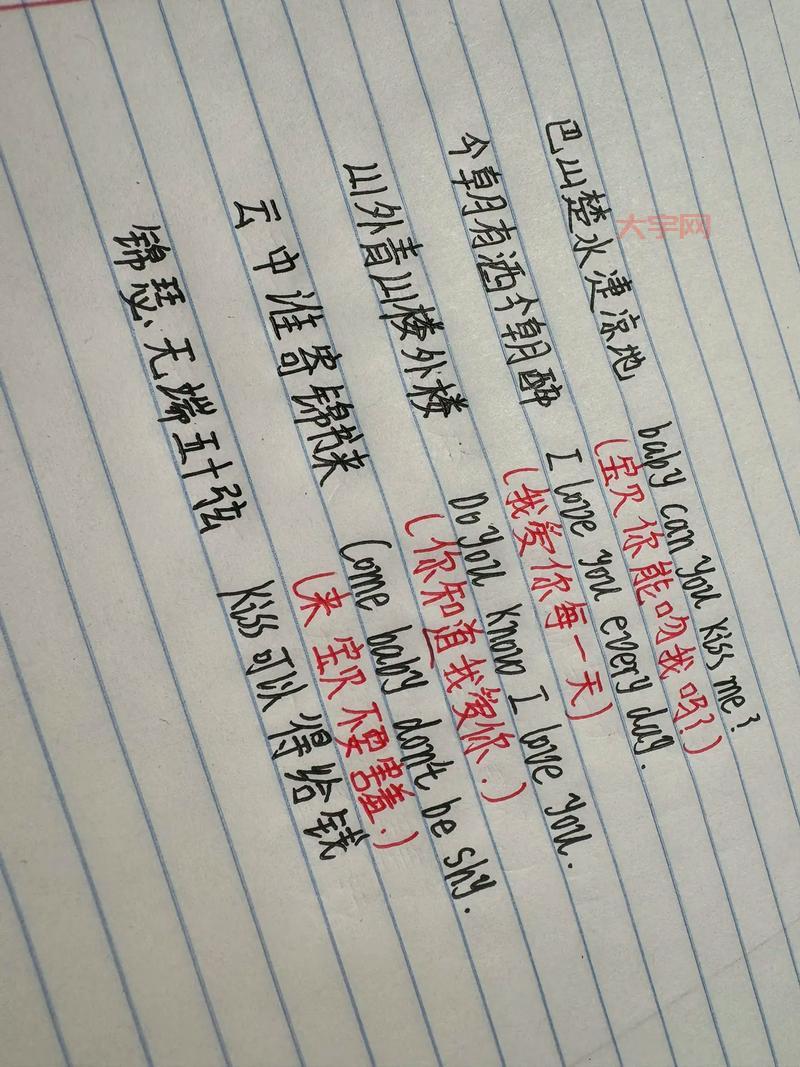 大宇网
巴山楚水凄凉地 baby can you kiss me?
(宝贝你能吻我吗?)
今朝有酒今朝醉 I love you every day.
(我爱你每一天)
山外青山楼外楼 Do you know I love you.
(你知道我爱你.)
云中谁寄锦书来 Come baby don't be shy.
(来宝贝不要害羞.)
锦瑟无端五十弦 Kiss可以得给钱